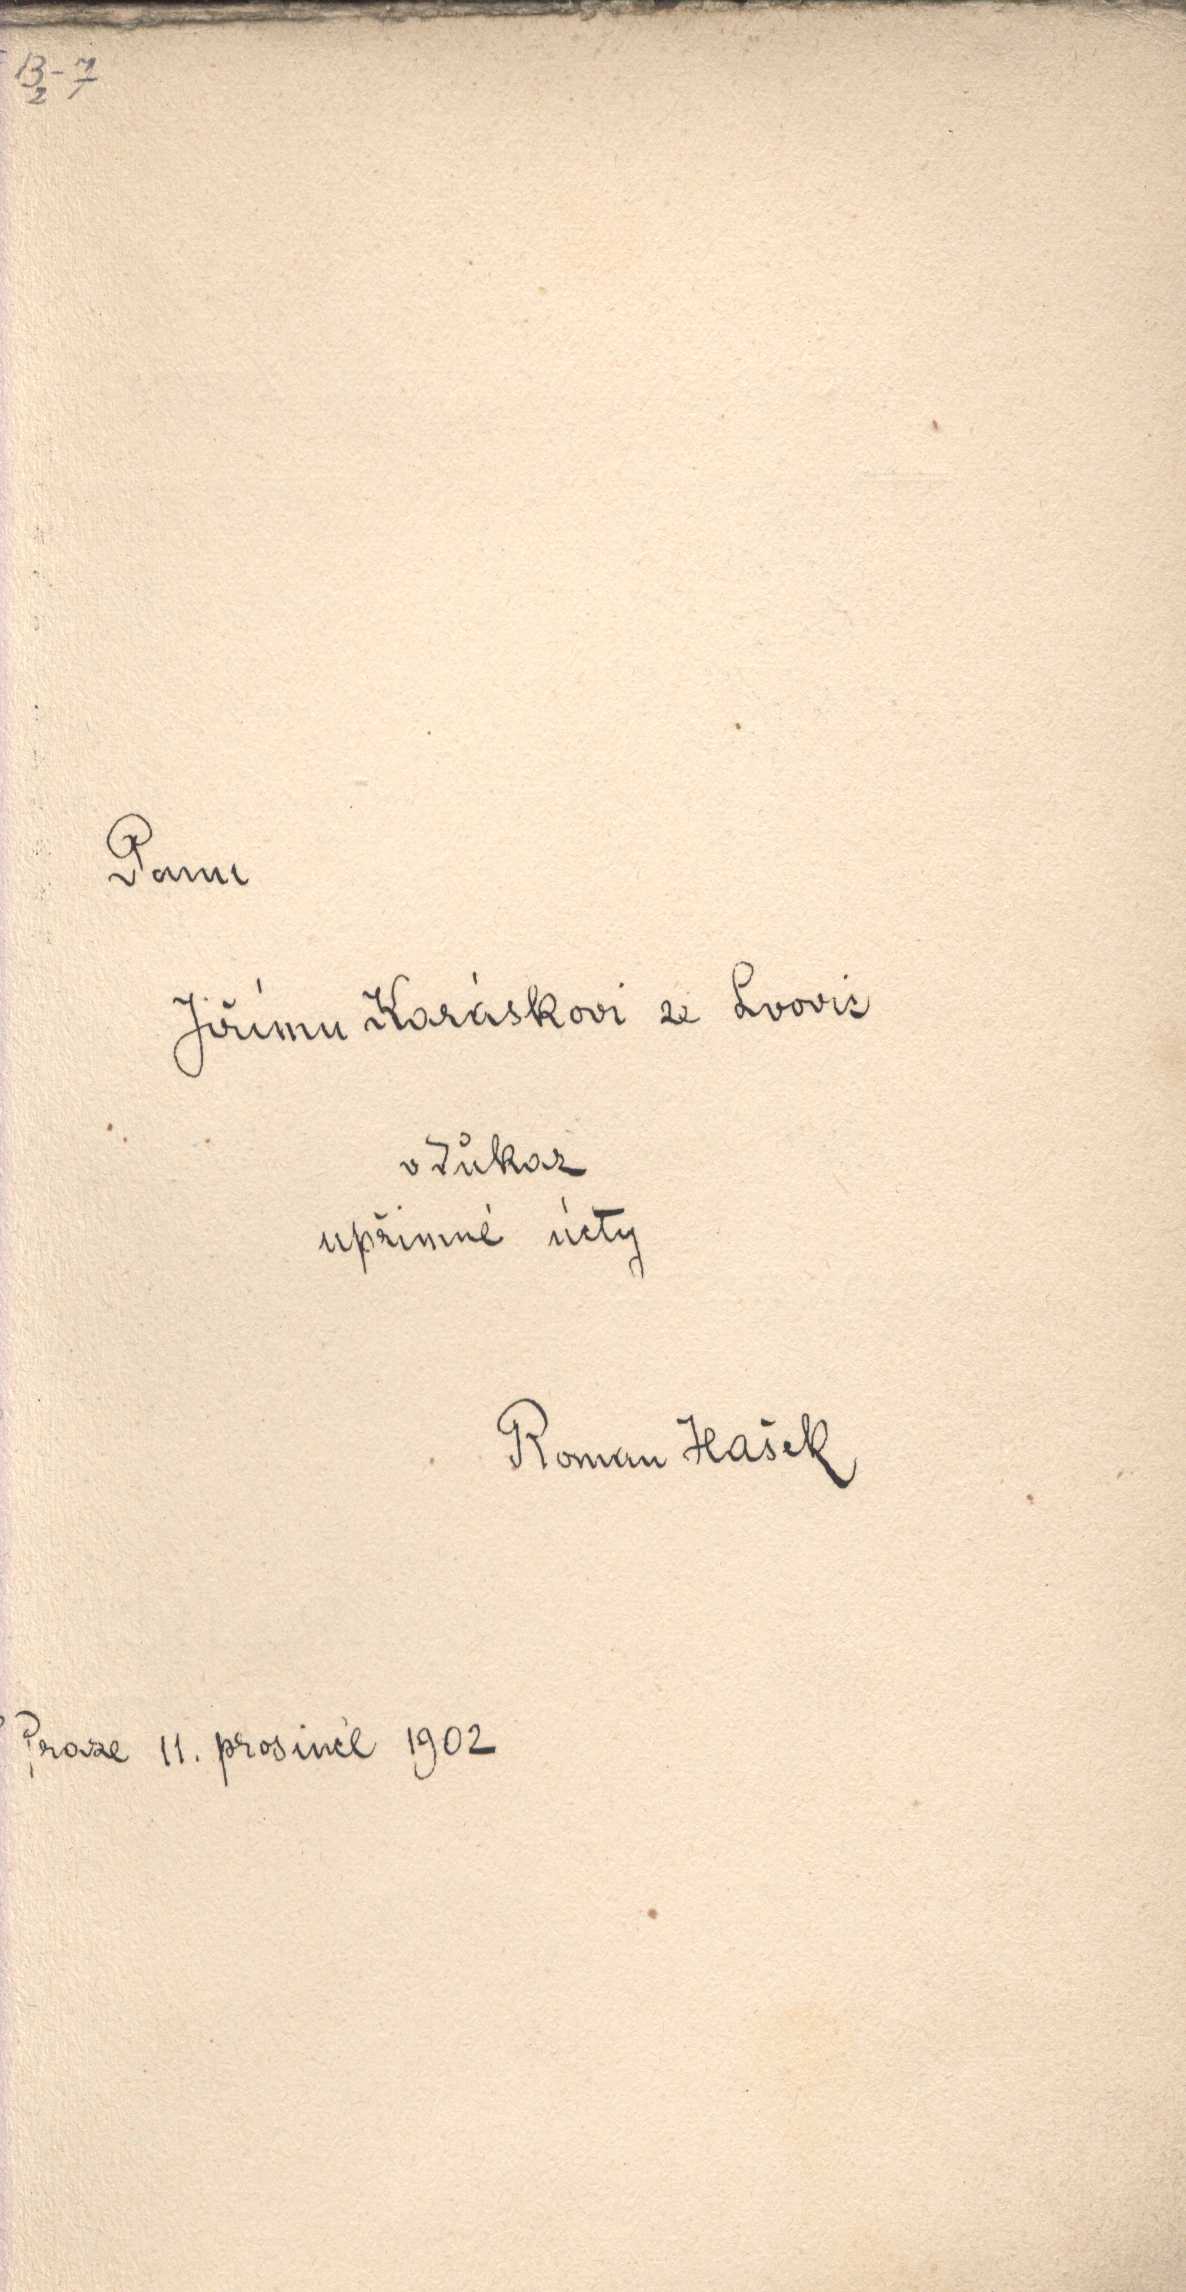 B-7
2
Panu
Jiřímu Karáskovi ze Lvovic
v důkaz
upřímné úcty
Roman Hašek
Praze 11. prosince 1902